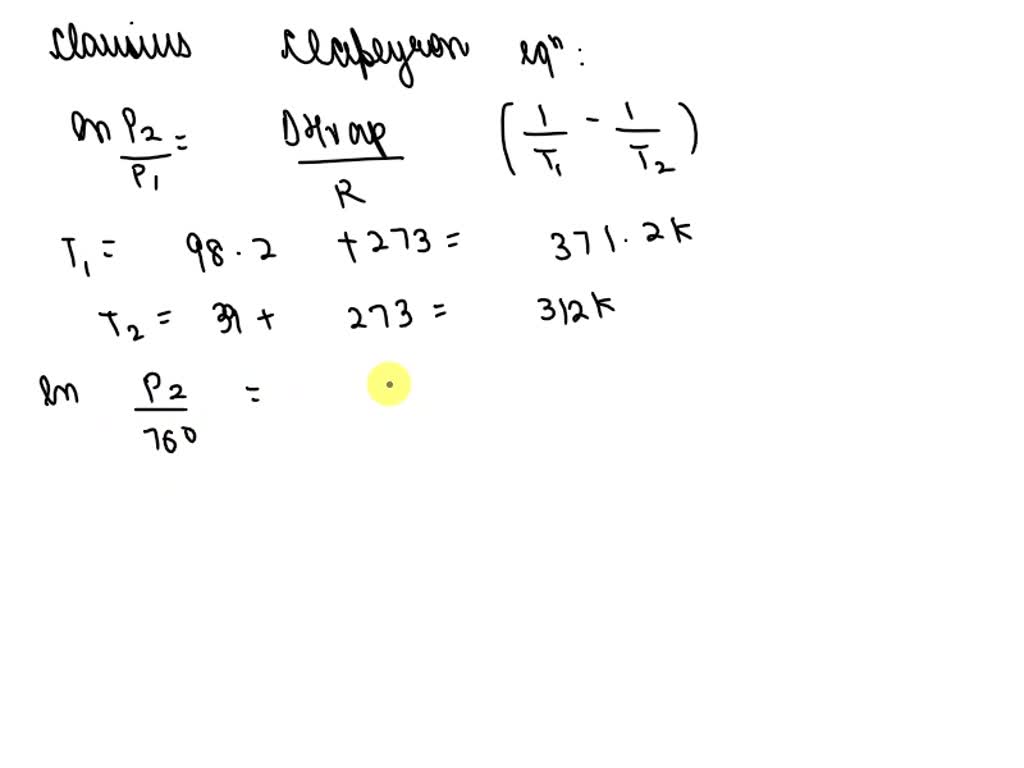 Clausius Clapeyron eqⁿ:
ln P2/P1 = DHvap/R (1/T1 - 1/T2)
T1 = 98.2 + 273 = 371.2 K
T2 = 39 + 273 = 312 K
ln P2/760 =